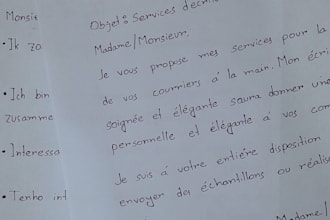 Monsie
• Ik zo
• Ich bin
zusamme
• Interessa
• Tenho int
Objet: Services
Madame/Monsieur,
Je vous propose mes services pour la
de vos courriers à la main. Mon écri
soignée et élégante saura donner une
personnelle et élégante à vos cor
Je suis à votre entière disposition
envoyer des échantillons ou réalise
Madame/